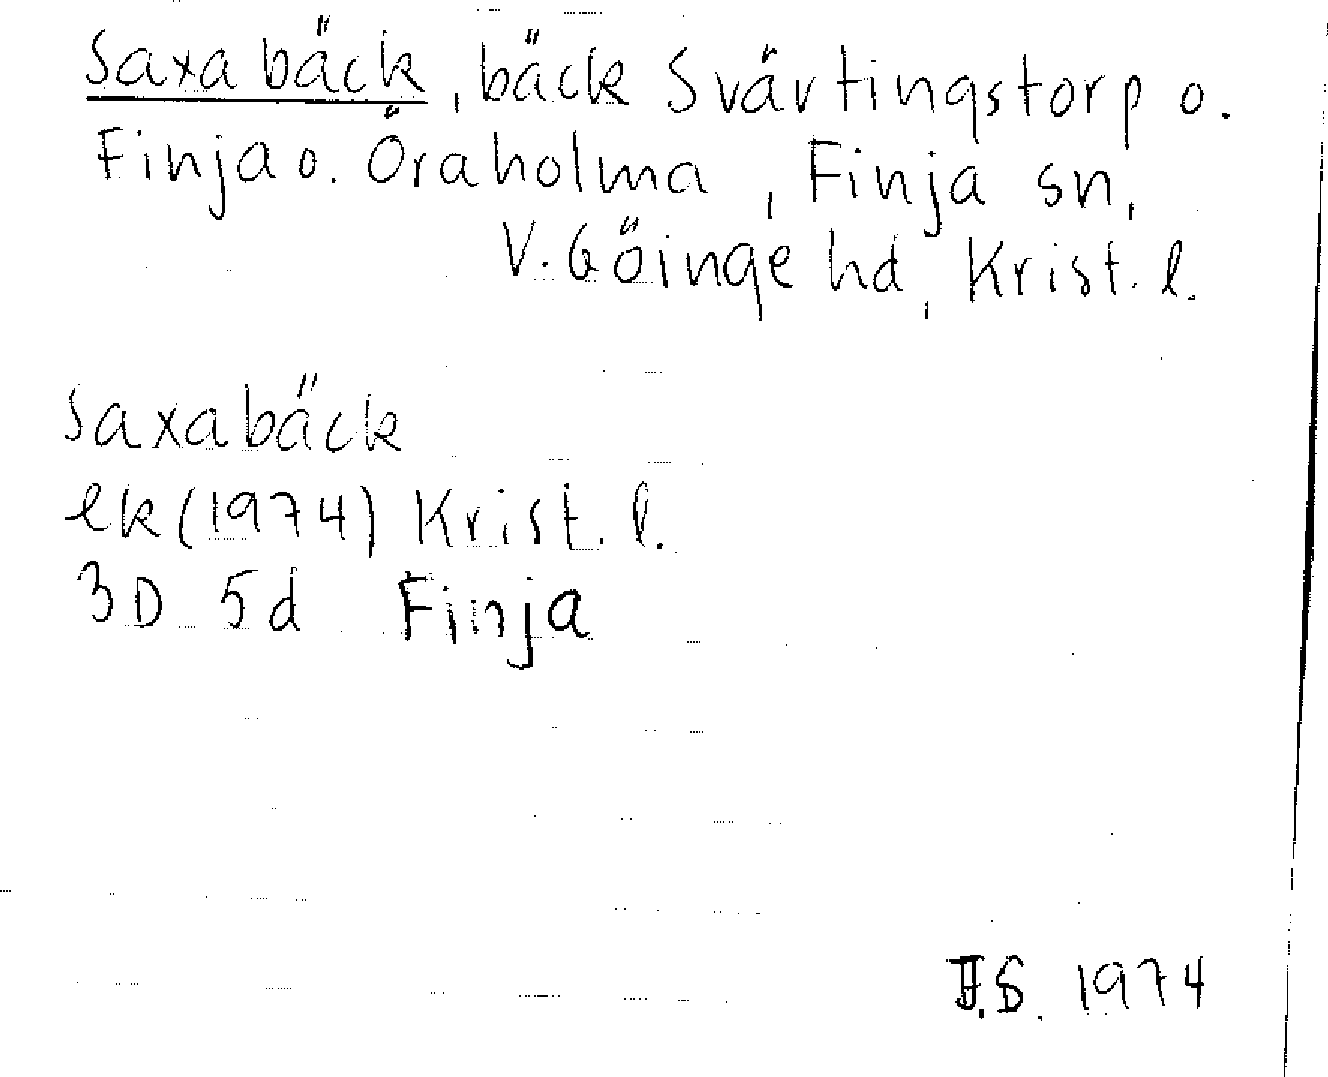 Saxabäck, bäck Svärtingstorp o.
Finja o. Öraholma, Finja sn,
V. Göinge hd, Krist. l.
Saxabäck
ek (1974) Krist. l.
3D 5d Finja
I.S. 1974